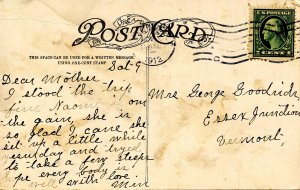 POST CARD
THIS SPACE CAN BE USED FOR A WRITTEN MESSAGE,
USING ONE-CENT STAMP
1912
Sat 9
Dear Mother
I stood the trip
fine Naomi on
the gain, she is
so glad I came, she
set up a little while
yesterday and tryed
to take a few steps
every body is
well with love
Mrs George Goodrich
Essex Junction
Vermont.